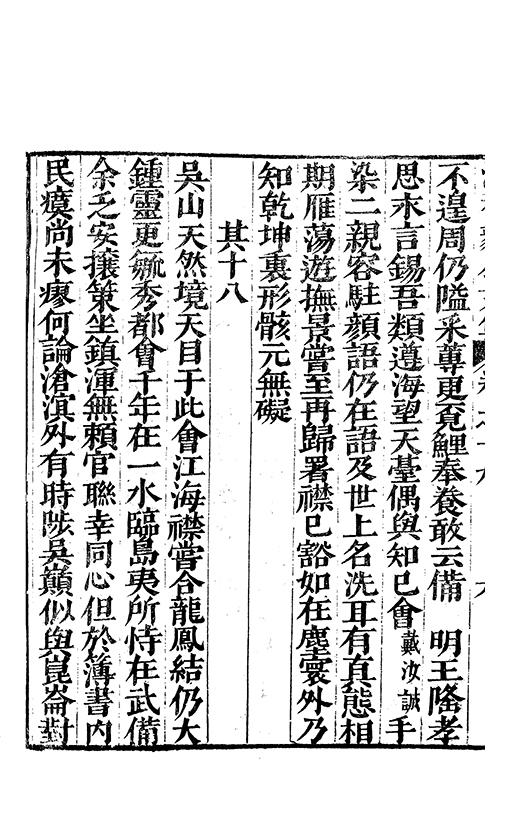 不遑周仍隘采蓴更覓鯉奉養敢云備　明王隆孝
思永言錫吾類遵海望天臺偶與知己會戴汝誠手
染二親容駐顏語仍在語及世上名洗耳有真態相
期雁蕩遊撫景嘗至再歸署襟已豁如在塵寰外乃
知乾坤裏形骸元無礙
其十八
吳山天然境天目于此會江海襟嘗合龍鳳結仍大
鍾靈更毓秀都會千年在一水臨島夷所恃在武備
余乏安攘策坐鎮渾無賴官聯幸同心但於簿書內
民瘼尚未瘳何論滄溟外有時陟吳巔似與崑崙對